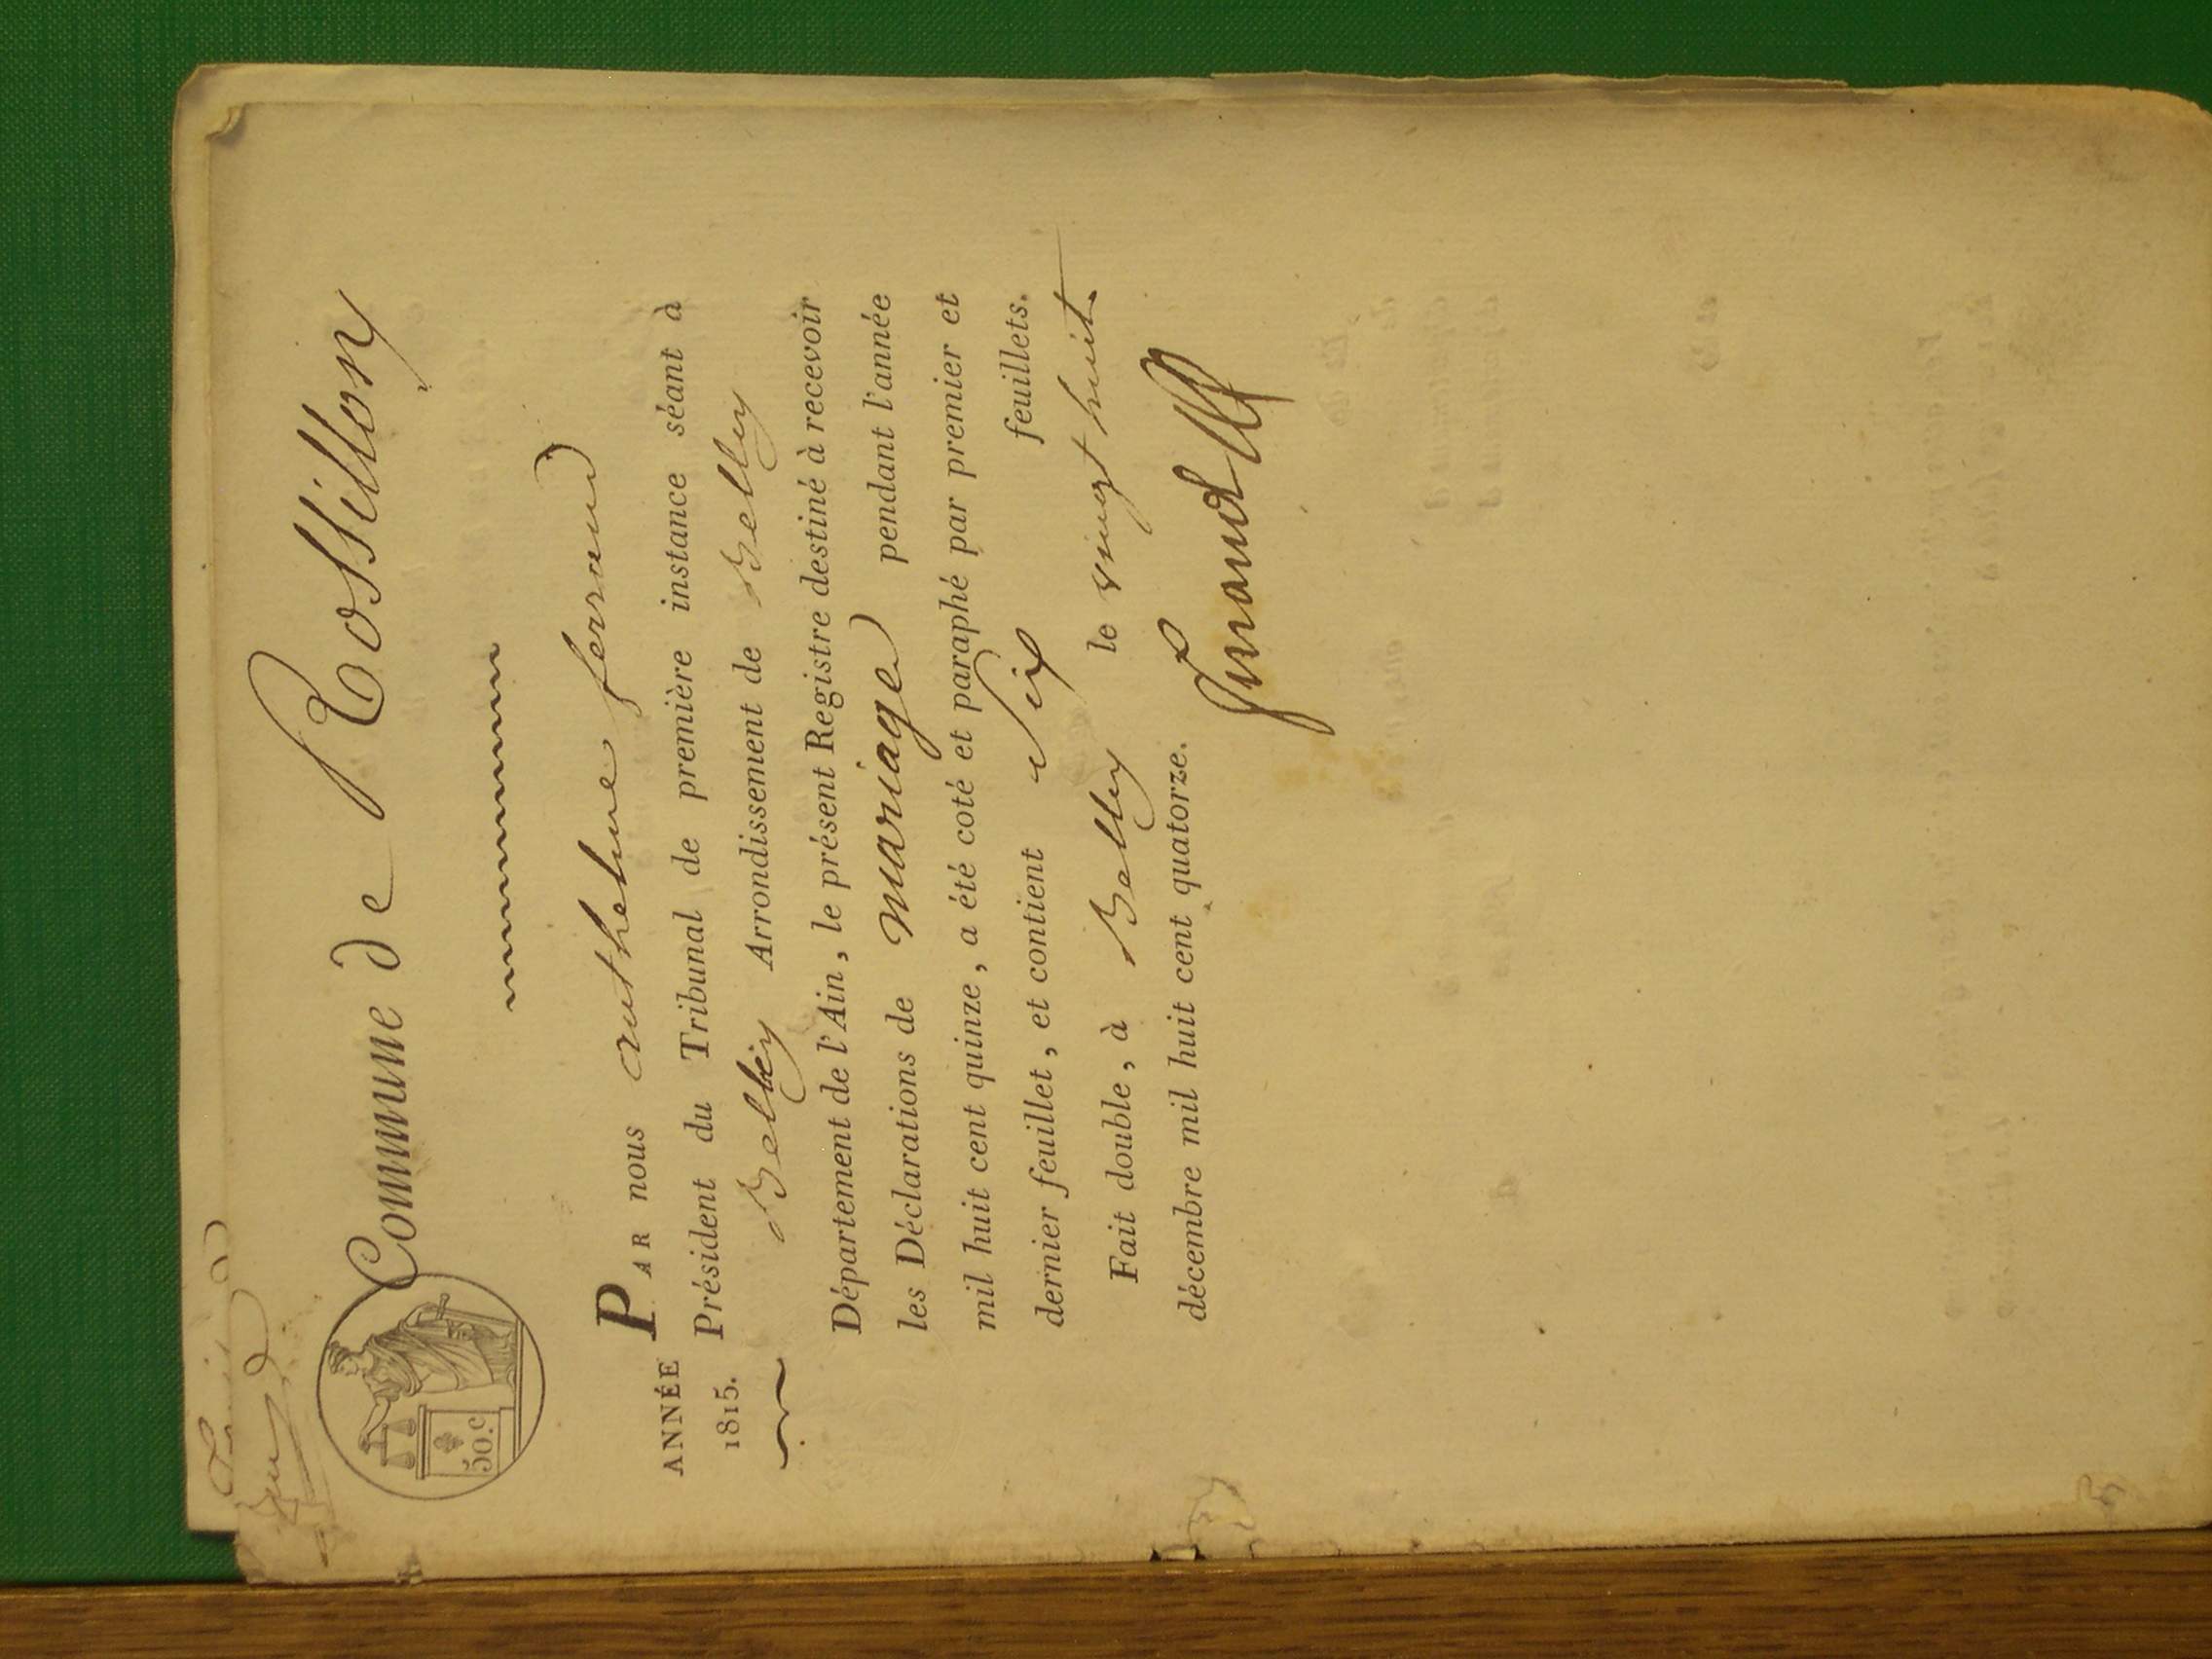 Commune de Rossillon
50.c
ANNÉE
1815.
PAR nous anthelme ferrand
Président du Tribunal de première instance séant à
Belley Arrondissement de Belley
Département de l'Ain, le présent Registre destiné à recevoir
les Déclarations de mariage pendant l'année
mil huit cent quinze, a été coté et paraphé par premier et
dernier feuillet, et contient Six feuillets.
Fait double, à Belley le vingt huit
décembre mil huit cent quatorze.
Ferrand